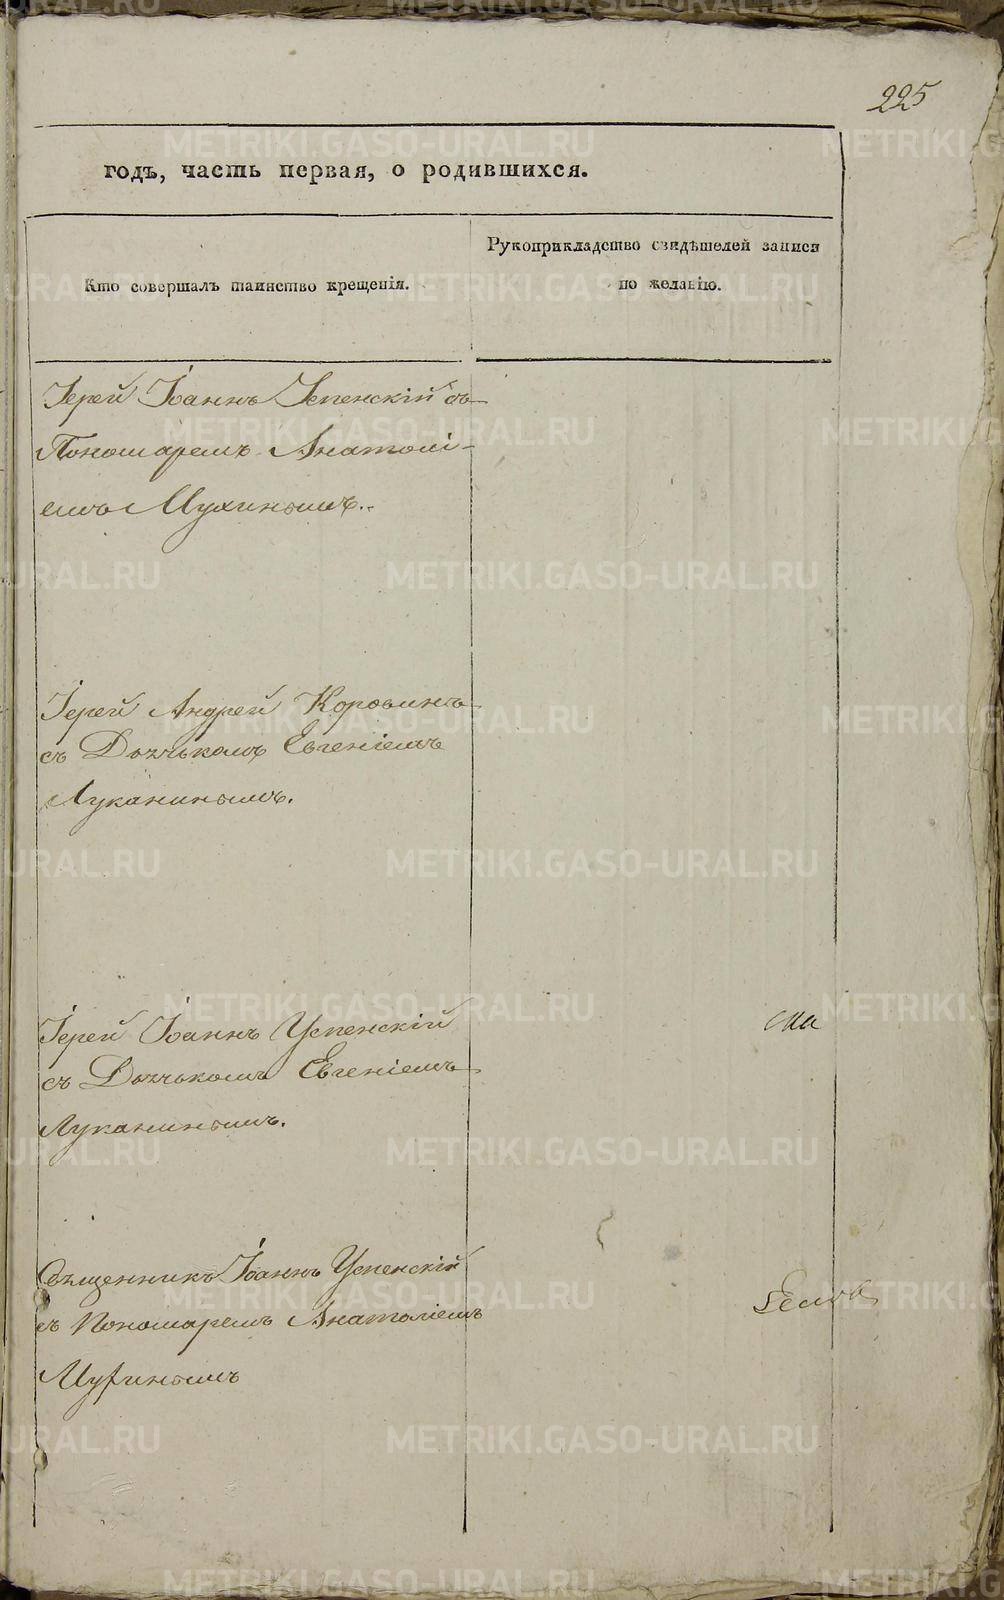 225
годъ, часть первая, о родившихся.
Кто совершалъ таинство крещенія.
Рукоприкладство свидѣтелей записи
по желанію.
Іерей Іоаннъ Успенскій съ
Пономаремъ Анатолі-
емъ Мухинымъ.
Іерей Андрей Коровинъ
съ Дьячькомъ Евгеніемъ
Луканинымъ.
Іерей Іоаннъ Успенскій
съ Дьячькомъ Евгеніемъ
Луканинымъ.
Священникъ Іоаннъ Успенскій
съ Пономаремъ Анатоліемъ
Мухинымъ
METRIKI.GASO-URAL.RU